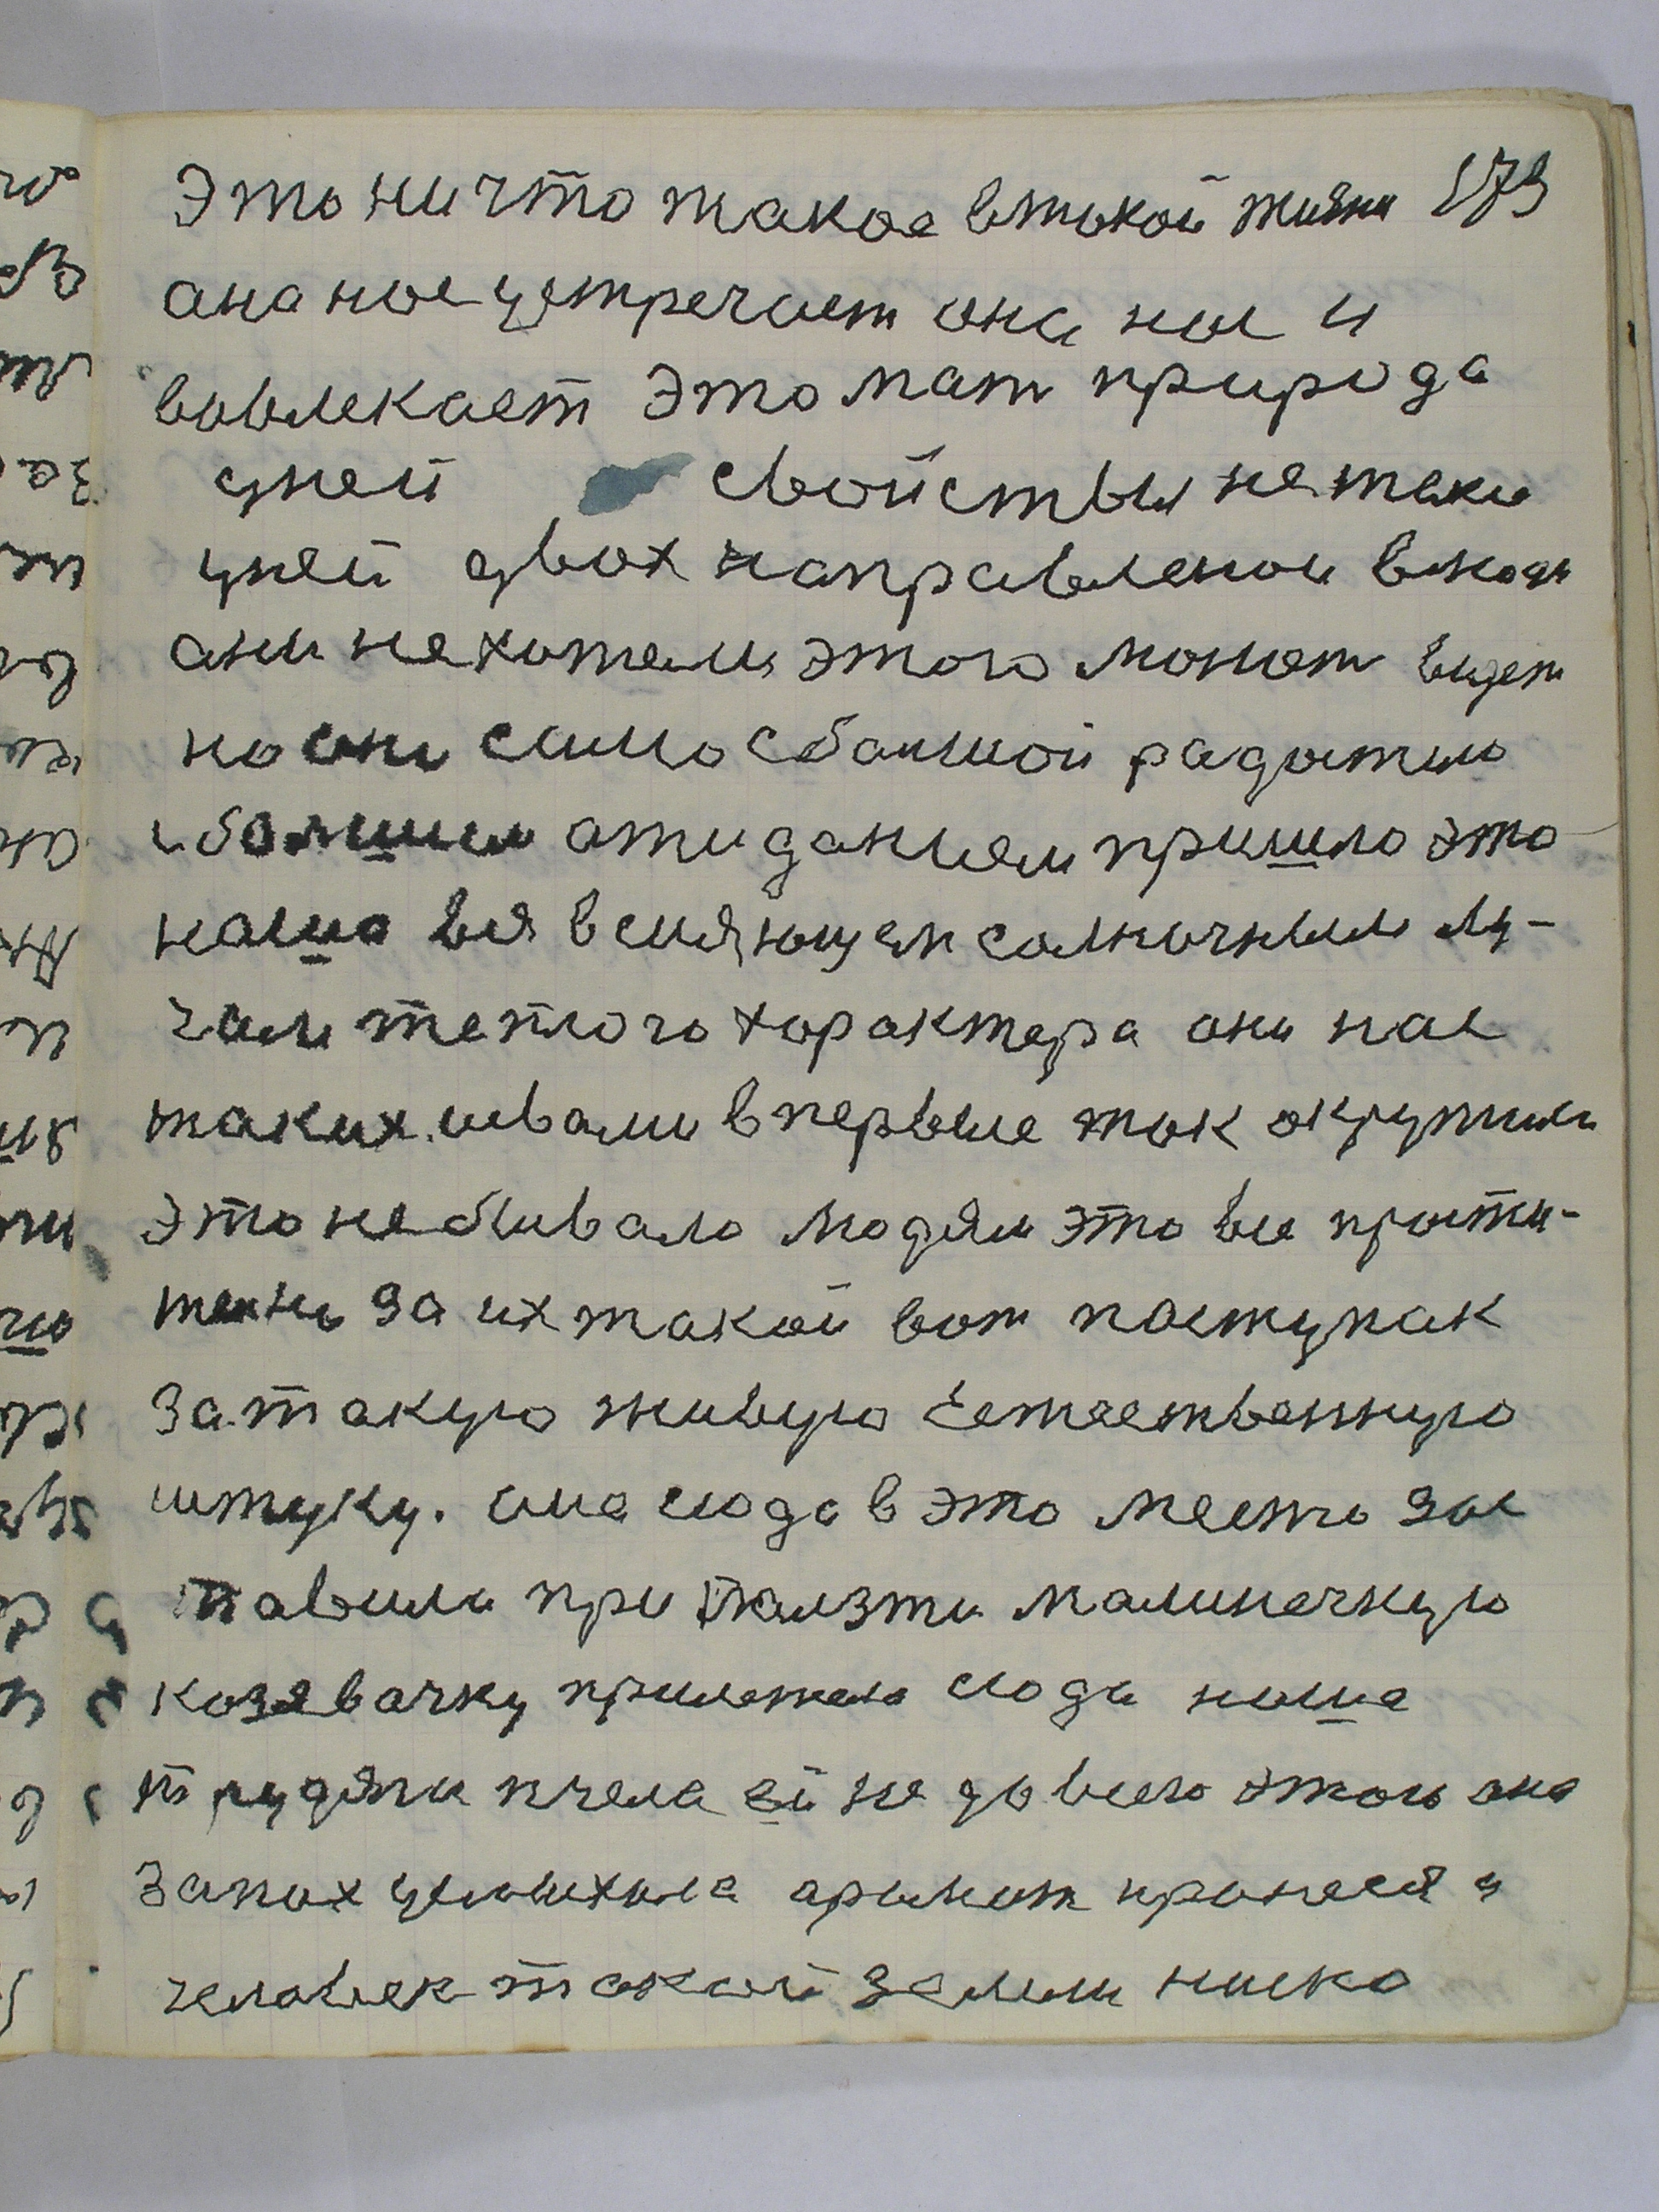 Это ничто такое втокой жизни 173
ана нас устречает она нас и
вовлекает это мат природа
уней свойствы не таки
уней двох направленои
ани не хотели этого монет видет
но они само с балшой радостию
и балшим ожиданием пришло это
наша вся всияющем солночным лу-
чам теплого характера они нас
таких. ивами впервые так окружили
это не бывало людям это все прости-
тена за их такой вот поступак
за такую живую Естественную
штуку. ана сюда в это место зас
тавила при ползти малинечкую
козявачку прилетела сюда наша
трудяга пчела ей не до всего этого она
запах услыхала аромат пронеся у
человек такой земли ниско